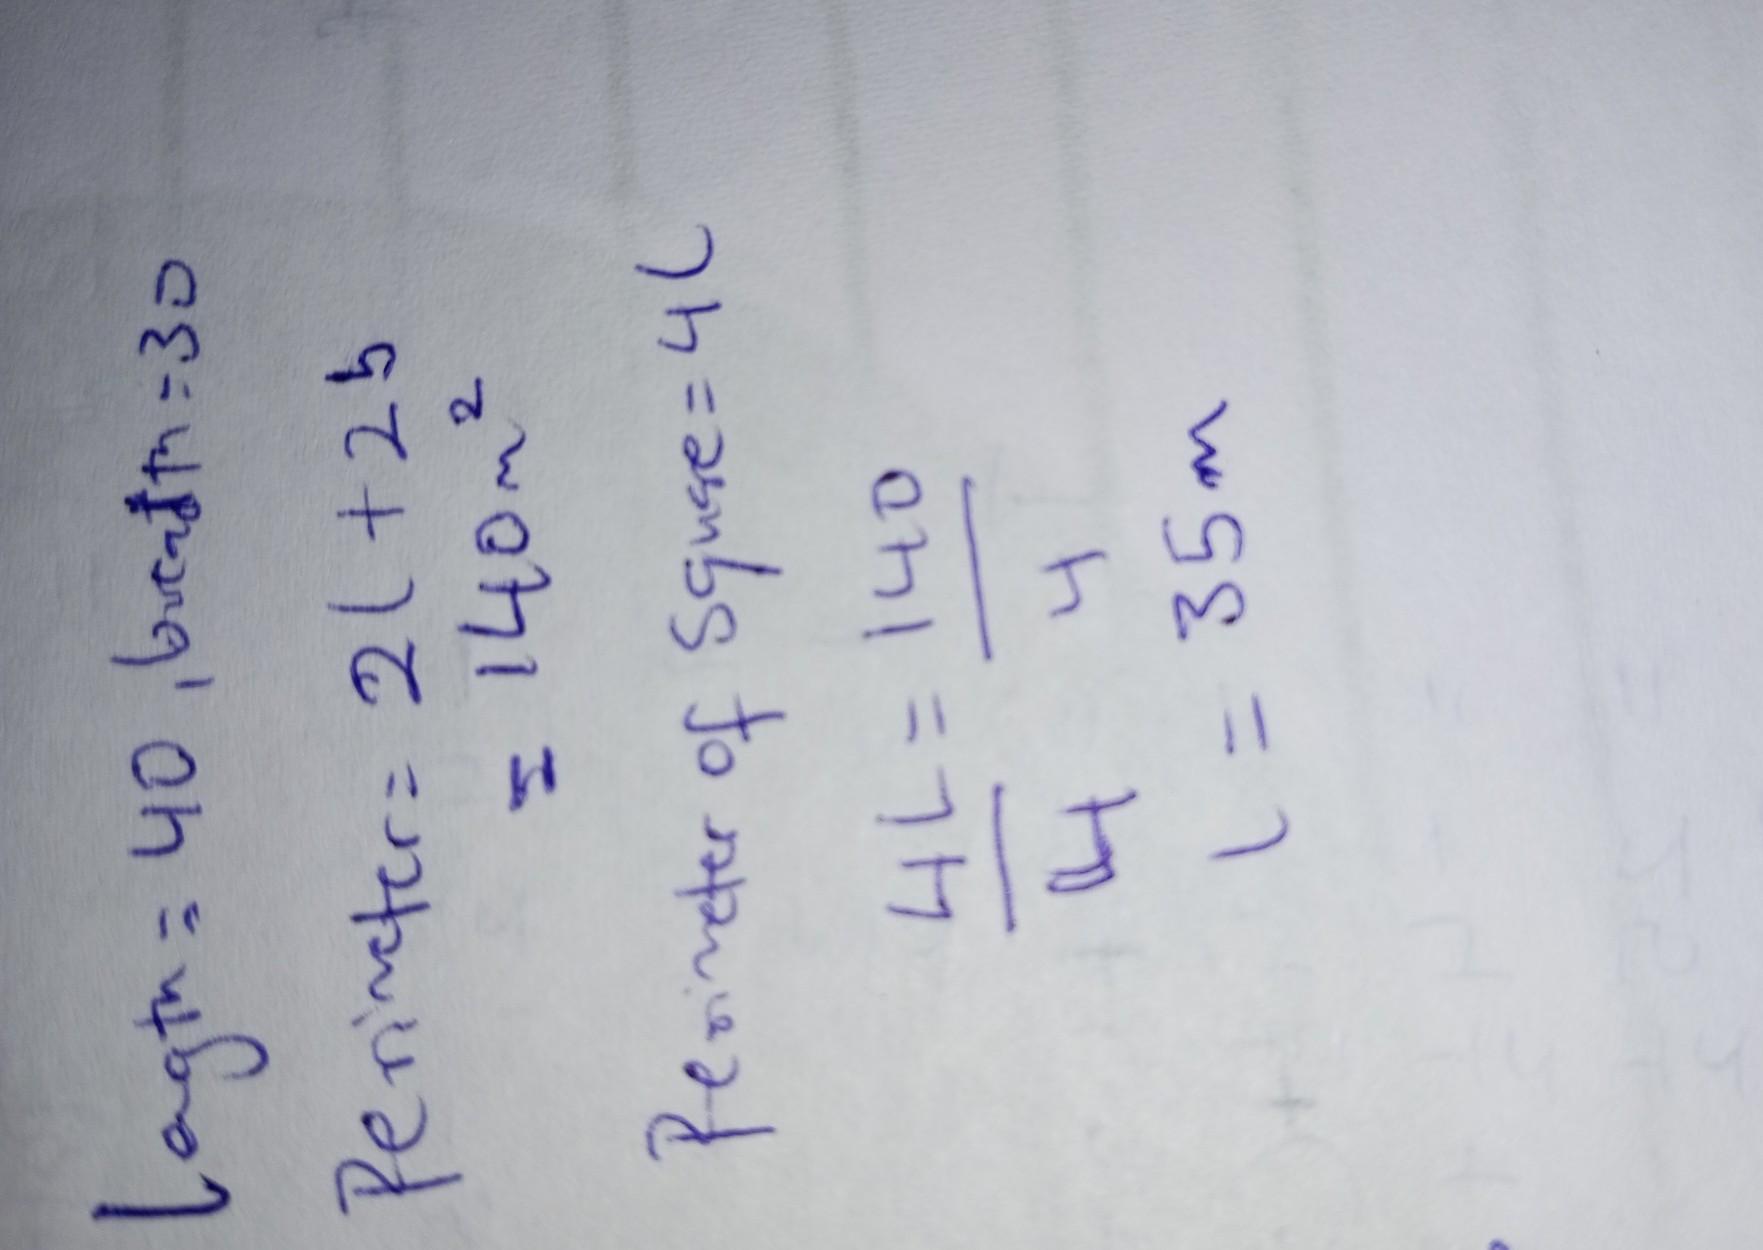 Length = 40, breadth = 30
Perimeter = 2l + 2b
= 140 m²
Perimeter of square = 4l
4L = 140
4 4
L = 35 m